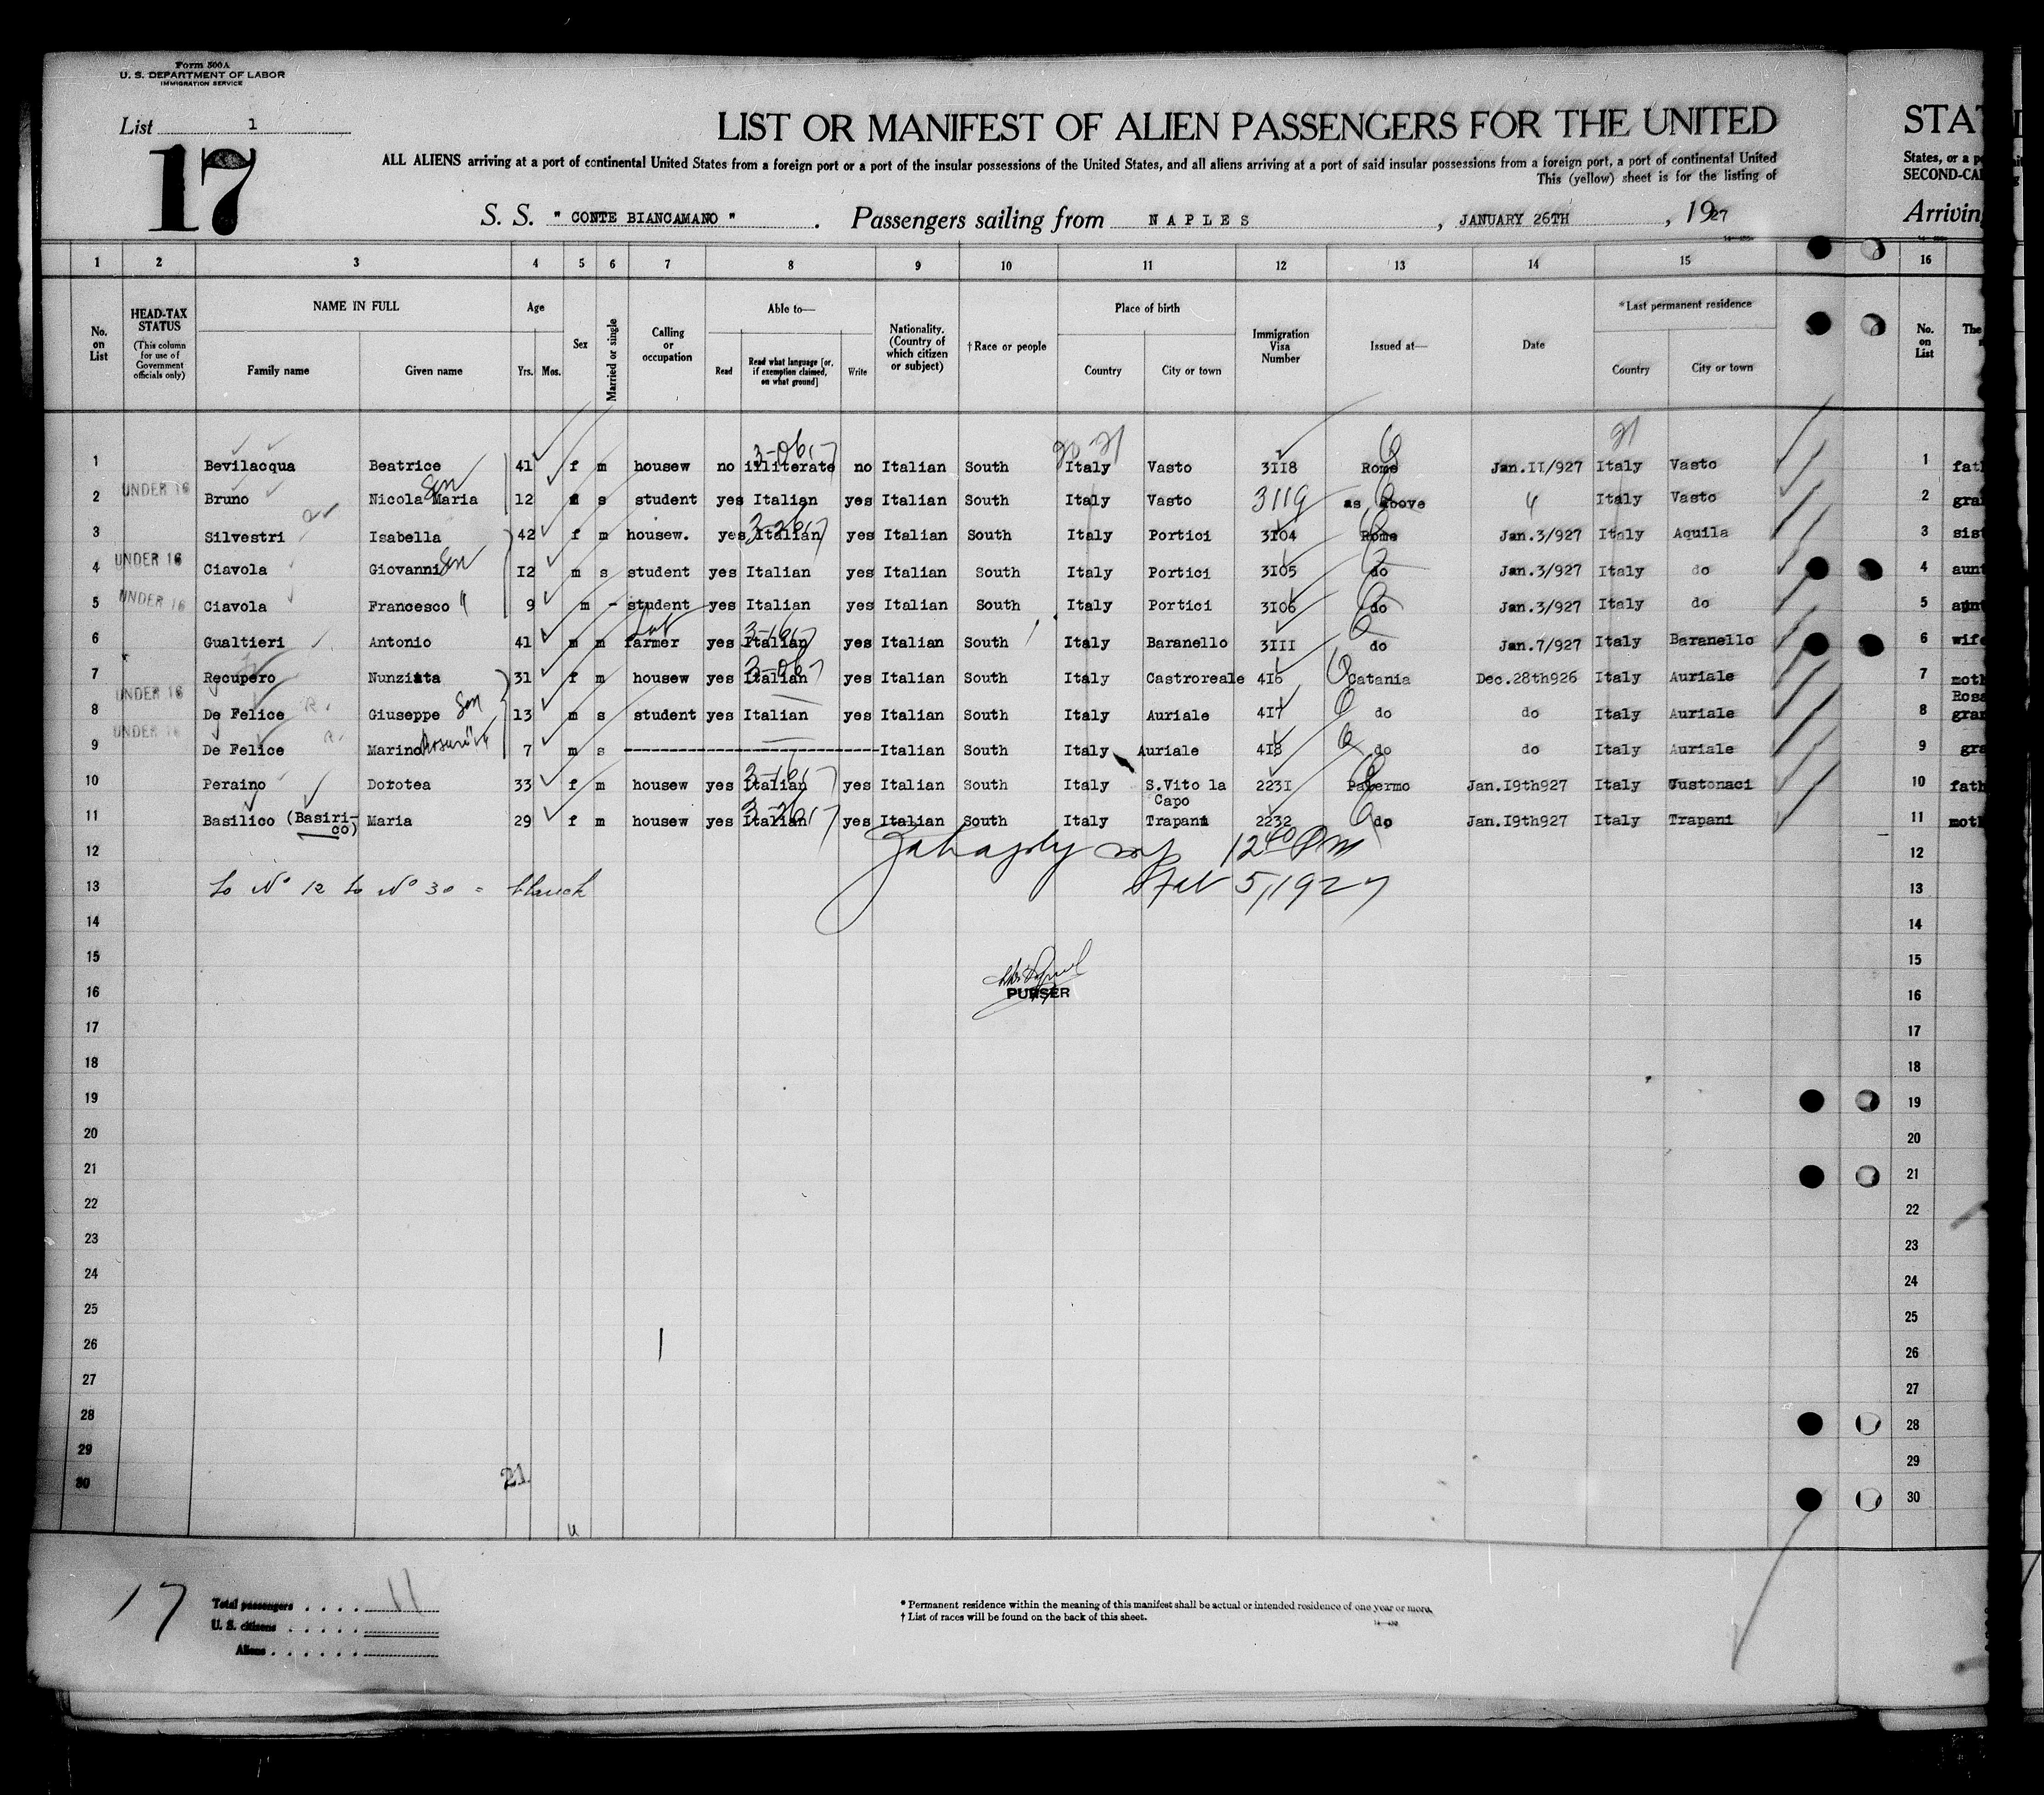 Form 500A
U. S. DEPARTMENT OF LABOR
IMMIGRATION SERVICE
List 1
17
LIST OR MANIFEST OF ALIEN PASSENGERS FOR THE UNITED
ALL ALIENS arriving at a port of continental United States from a foreign port or a port of the insular possessions of the United States, and all aliens arriving at a port of said insular possessions from a foreign port, a port of continental United
This (yellow) sheet is for the listing of
S. S. " CONTE BIANCAMANO " . Passengers sailing from NAPLES , JANUARY 26TH , 1927
STA
States, or a
SECOND-CA
Arriving
1 2 3 4 5 6 7 8 9 10 11 12 13 14 15 16
No. on List
HEAD-TAX STATUS
(This column for use of Government officials only)
NAME IN FULL
Family name Given name
Age
Yrs. Mos.
Sex
Married or single
Calling or occupation
Able to—
Read Read what language [or, if exemption claimed, on what ground] Write
Nationality. (Country of which citizen or subject)
†Race or people
Place of birth
Country City or town
Immigration Visa Number
Issued at—
Date
*Last permanent residence
Country City or town
No. on List
The
1 Bevilacqua Beatrice 41 f m housew no illiterate no Italian South Italy Vasto 3118 Rome Jan.II/927 Italy Vasto 1
2 UNDER 16 Bruno Nicola Maria Son 12 s student yes Italian yes Italian South Italy Vasto 3119 as above Italy Vasto 2
3 Silvestri Isabella 42 f m housew. yes Italian yes Italian South Italy Portici 3104 Rome Jan.3/927 Italy Aquila 3
4 UNDER 16 Ciavola Giovanni Son I2 m s student yes Italian yes Italian South Italy Portici 3105 do Jan.3/927 Italy do 4 aunt
5 UNDER 16 Ciavola Francesco " 9 m - student yes Italian yes Italian South Italy Portici 3106 do Jan.3/927 Italy do 5
6 Gualtieri Antonio 41 m m farmer yes Italian yes Italian South Italy Baranello 3III do Jan.7/927 Italy Baranello 6 wife
7 Recupero Nunziata 31 f m housew yes Italian yes Italian South Italy Castroreale 416 Catania Dec.28th926 Italy Auriale 7
8 UNDER 16 De Felice Giuseppe Son 13 m s student yes Italian yes Italian South Italy Auriale 417 do do Italy Auriale 8
9 UNDER 16 De Felice Marino 7 m s Italian South Italy Auriale 418 do do Italy Auriale 9
10 Peraino Dorotea 33 f m housew yes Italian yes Italian South Italy S.Vito la Capo 223I Palermo Jan.I9th927 Italy Custonaci 10
11 Basilico (Basirico) Maria 29 f m housew yes Italian yes Italian South Italy Trapani 2232 do Jan.I9th927 Italy Trapani 11
12 12 40 PM 12
13 to No 12 to No 30 = blanck Feb 5, 1927 13
14 14
15 15
16 PURSER 16
17 17
18 18
19 19
20 20
21 21
22 22
23 23
24 24
25 25
26 26
27 27
28 28
29 29
30 21 30
17
Total passengers . . . . 11
U. S. citizens . . . . .
Aliens . . . . . .
* Permanent residence within the meaning of this manifest shall be actual or intended residence of one year or more.
† List of races will be found on the back of this sheet.